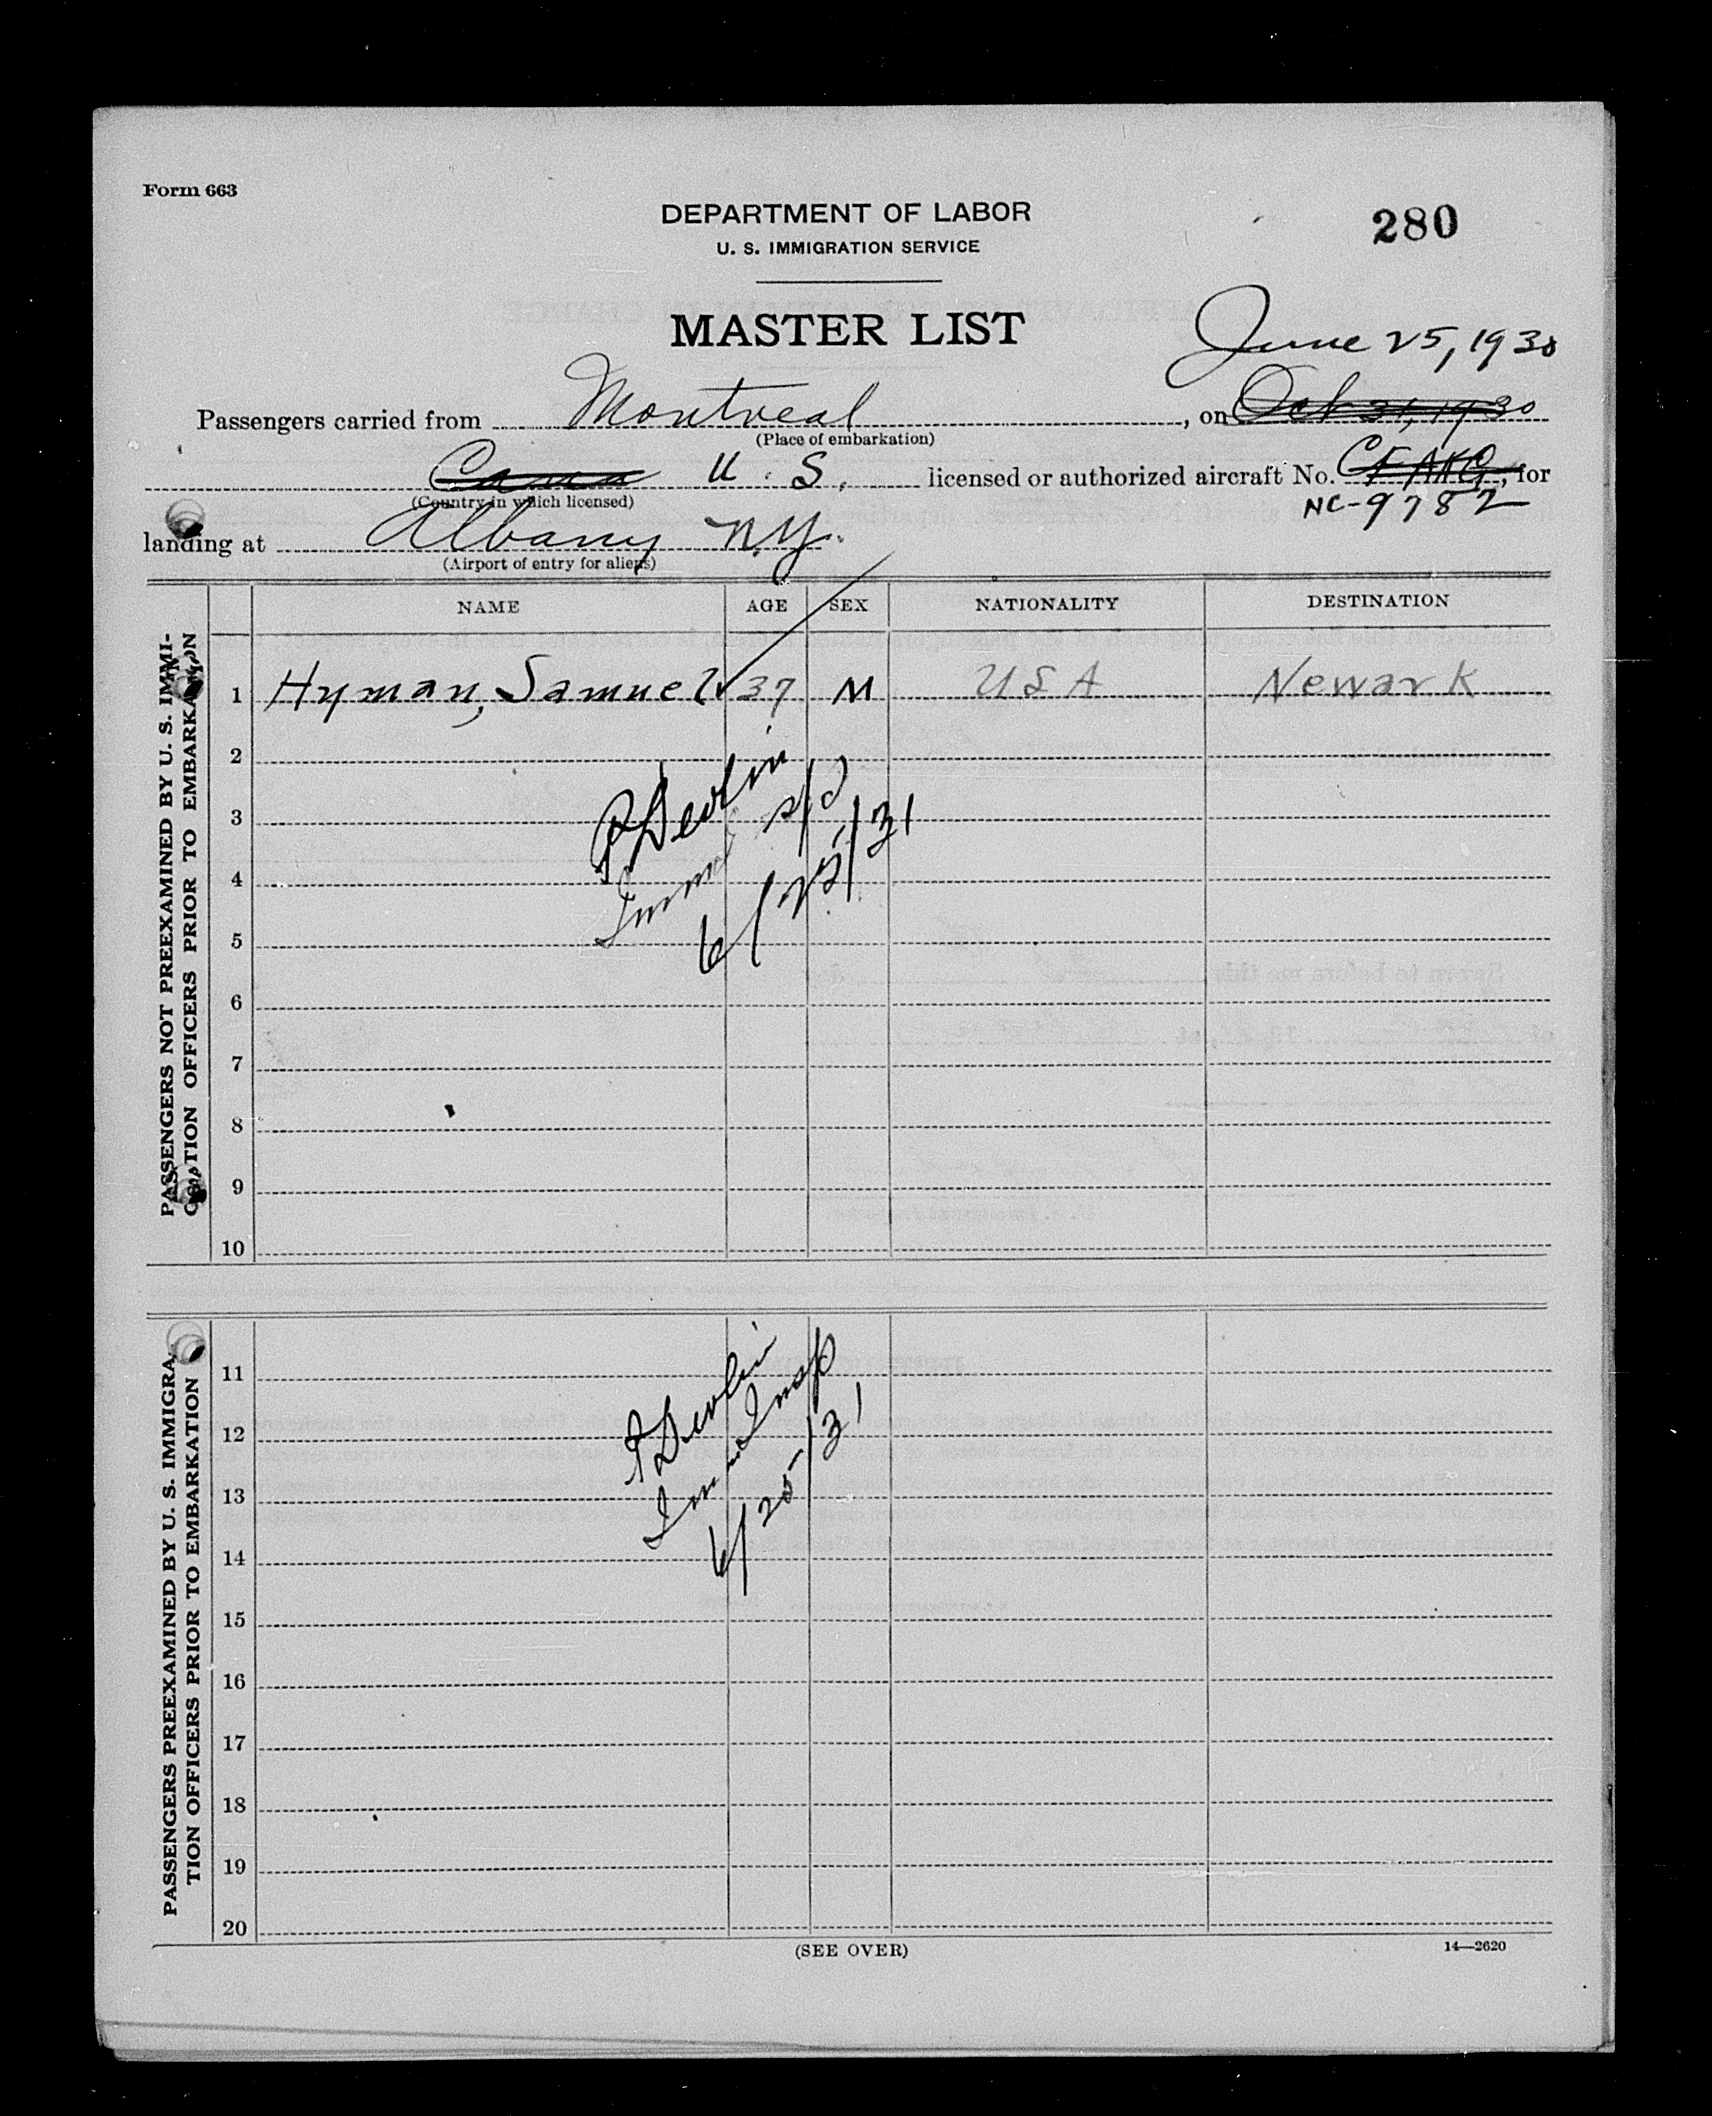 Form 663
DEPARTMENT OF LABOR
U. S. IMMIGRATION SERVICE
280
MASTER LIST
June 25, 1930
Passengers carried from Montreal, on Oct 31, 1930
(Place of embarkation)
Cana U. S. licensed or authorized aircraft No. CF AKQ, for
(Country in which licensed)
NC-9782
landing at Albany N.Y.
(Airport of entry for aliens)
NAME AGE SEX NATIONALITY DESTINATION
PASSENGERS NOT PREEXAMINED BY U. S. IMMI-
GRATION OFFICERS PRIOR TO EMBARKATION
1 Hyman, Samuel 37 M USA Newark
2
3
4
5
6
7
8
9
10
P Devlin
Immig
6/25/31
PASSENGERS PREEXAMINED BY U. S. IMMIGRA-
TION OFFICERS PRIOR TO EMBARKATION
11
12
13
14
15
16
17
18
19
20
P Devlin
Imm Insp
6/25/31
(SEE OVER)
14—2620